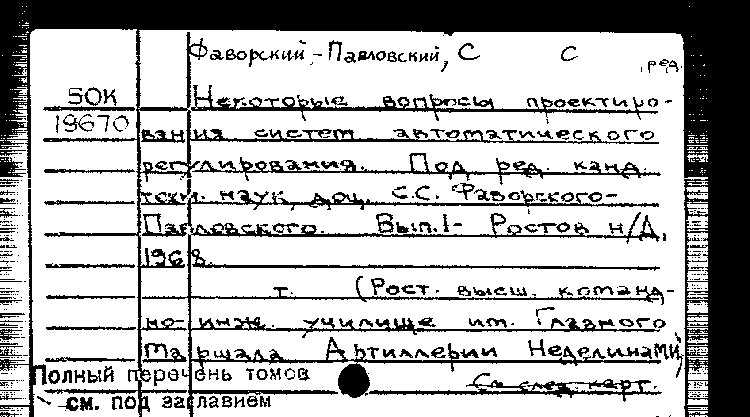 Фаворский-Павловский, С С
, ред.
50К
19670
Некоторые вопросы проектиро-
вания систем автоматического
регулирования. Под ред. канд.
техн. наук, доц. С.С. Фаворского-
Павловского. Вып.1- Ростов н/Д,
1968.
т. (Рост. высш. команд-
но-инж. училище им. Главного
Маршала Артиллерии Неделина М.И.)
См. след. карт.
Полный перечень томов
см. под заглавием